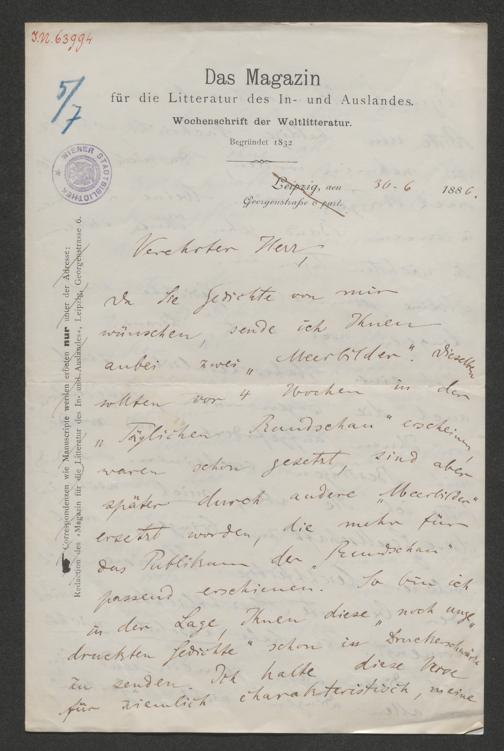 J.N. 63994
5/7
Das Magazin
für die Litteratur des In- und Auslandes.
Wochenschrift der Weltlitteratur.
Begründet 1832
Leipzig, den 30-6 1886.
Georgenstraße 6 part.
WIENER STADTBIBLIOTHEK
Correspondenzen wie Manuscripte werden erbeten nur unter der Adresse:
Redaction des »Magazin für die Litteratur des In- und Auslandes«, Leipzig, Georgenstrasse 6.
Verehrter Herr,
Da Sie Gedichte von mir
wünschen, sende ich Ihnen
anbei zwei „Meerbilder“. Dieselben
sollten vor 4 Wochen in der
„Täglichen Rundschau“ erscheinen,
waren schon gesetzt, sind aber
später durch andere „Meerbilder“
ersetzt worden, die mehr für
das Publikum der „Rundschau“
passend erschienen. So bin ich
in der Lage, Ihnen diese „noch unge-
druckten Gedichte“ schon in Druckerschwärze
zu senden. Ich halte diese Verse
für ziemlich charakteristisch, meine